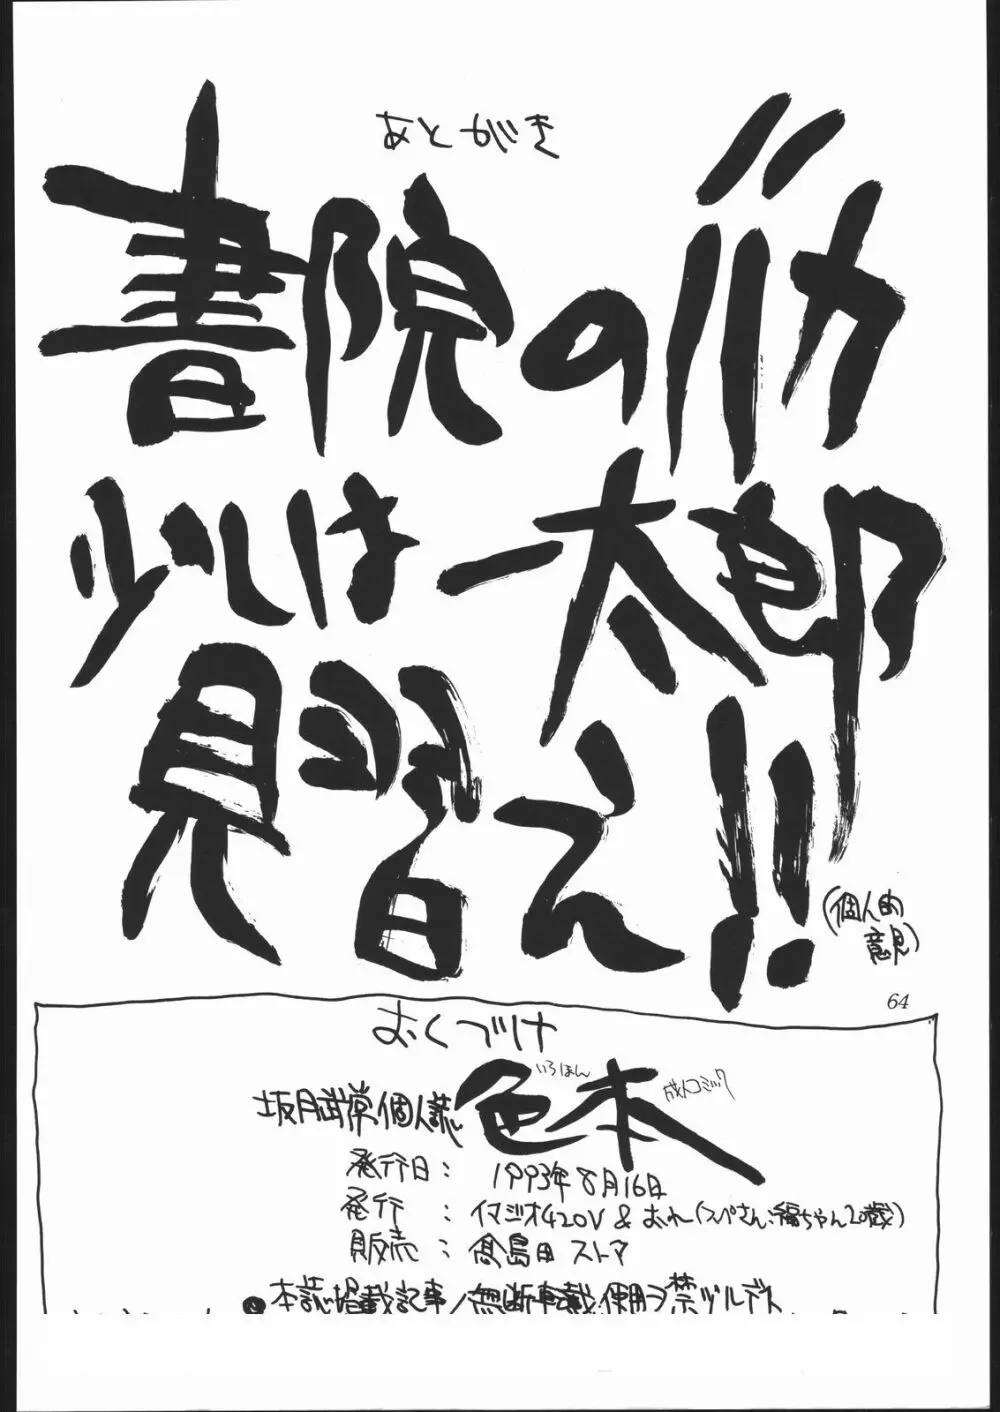 あとがき
書院のバカ
少しは一太郎
見習え!!
(個人的
意見)
64
おくづけ
いろほん
坂月武常個人誌 色本 成人コミック
発行日: 1993年8月16日
発行 : イマジオ420V & おれ(スペさん、福ちゃん20歳)
販売 : 髙島田 ストマ
●本誌掲載記事ノ無断転載、使用ヲ禁ヅルデス